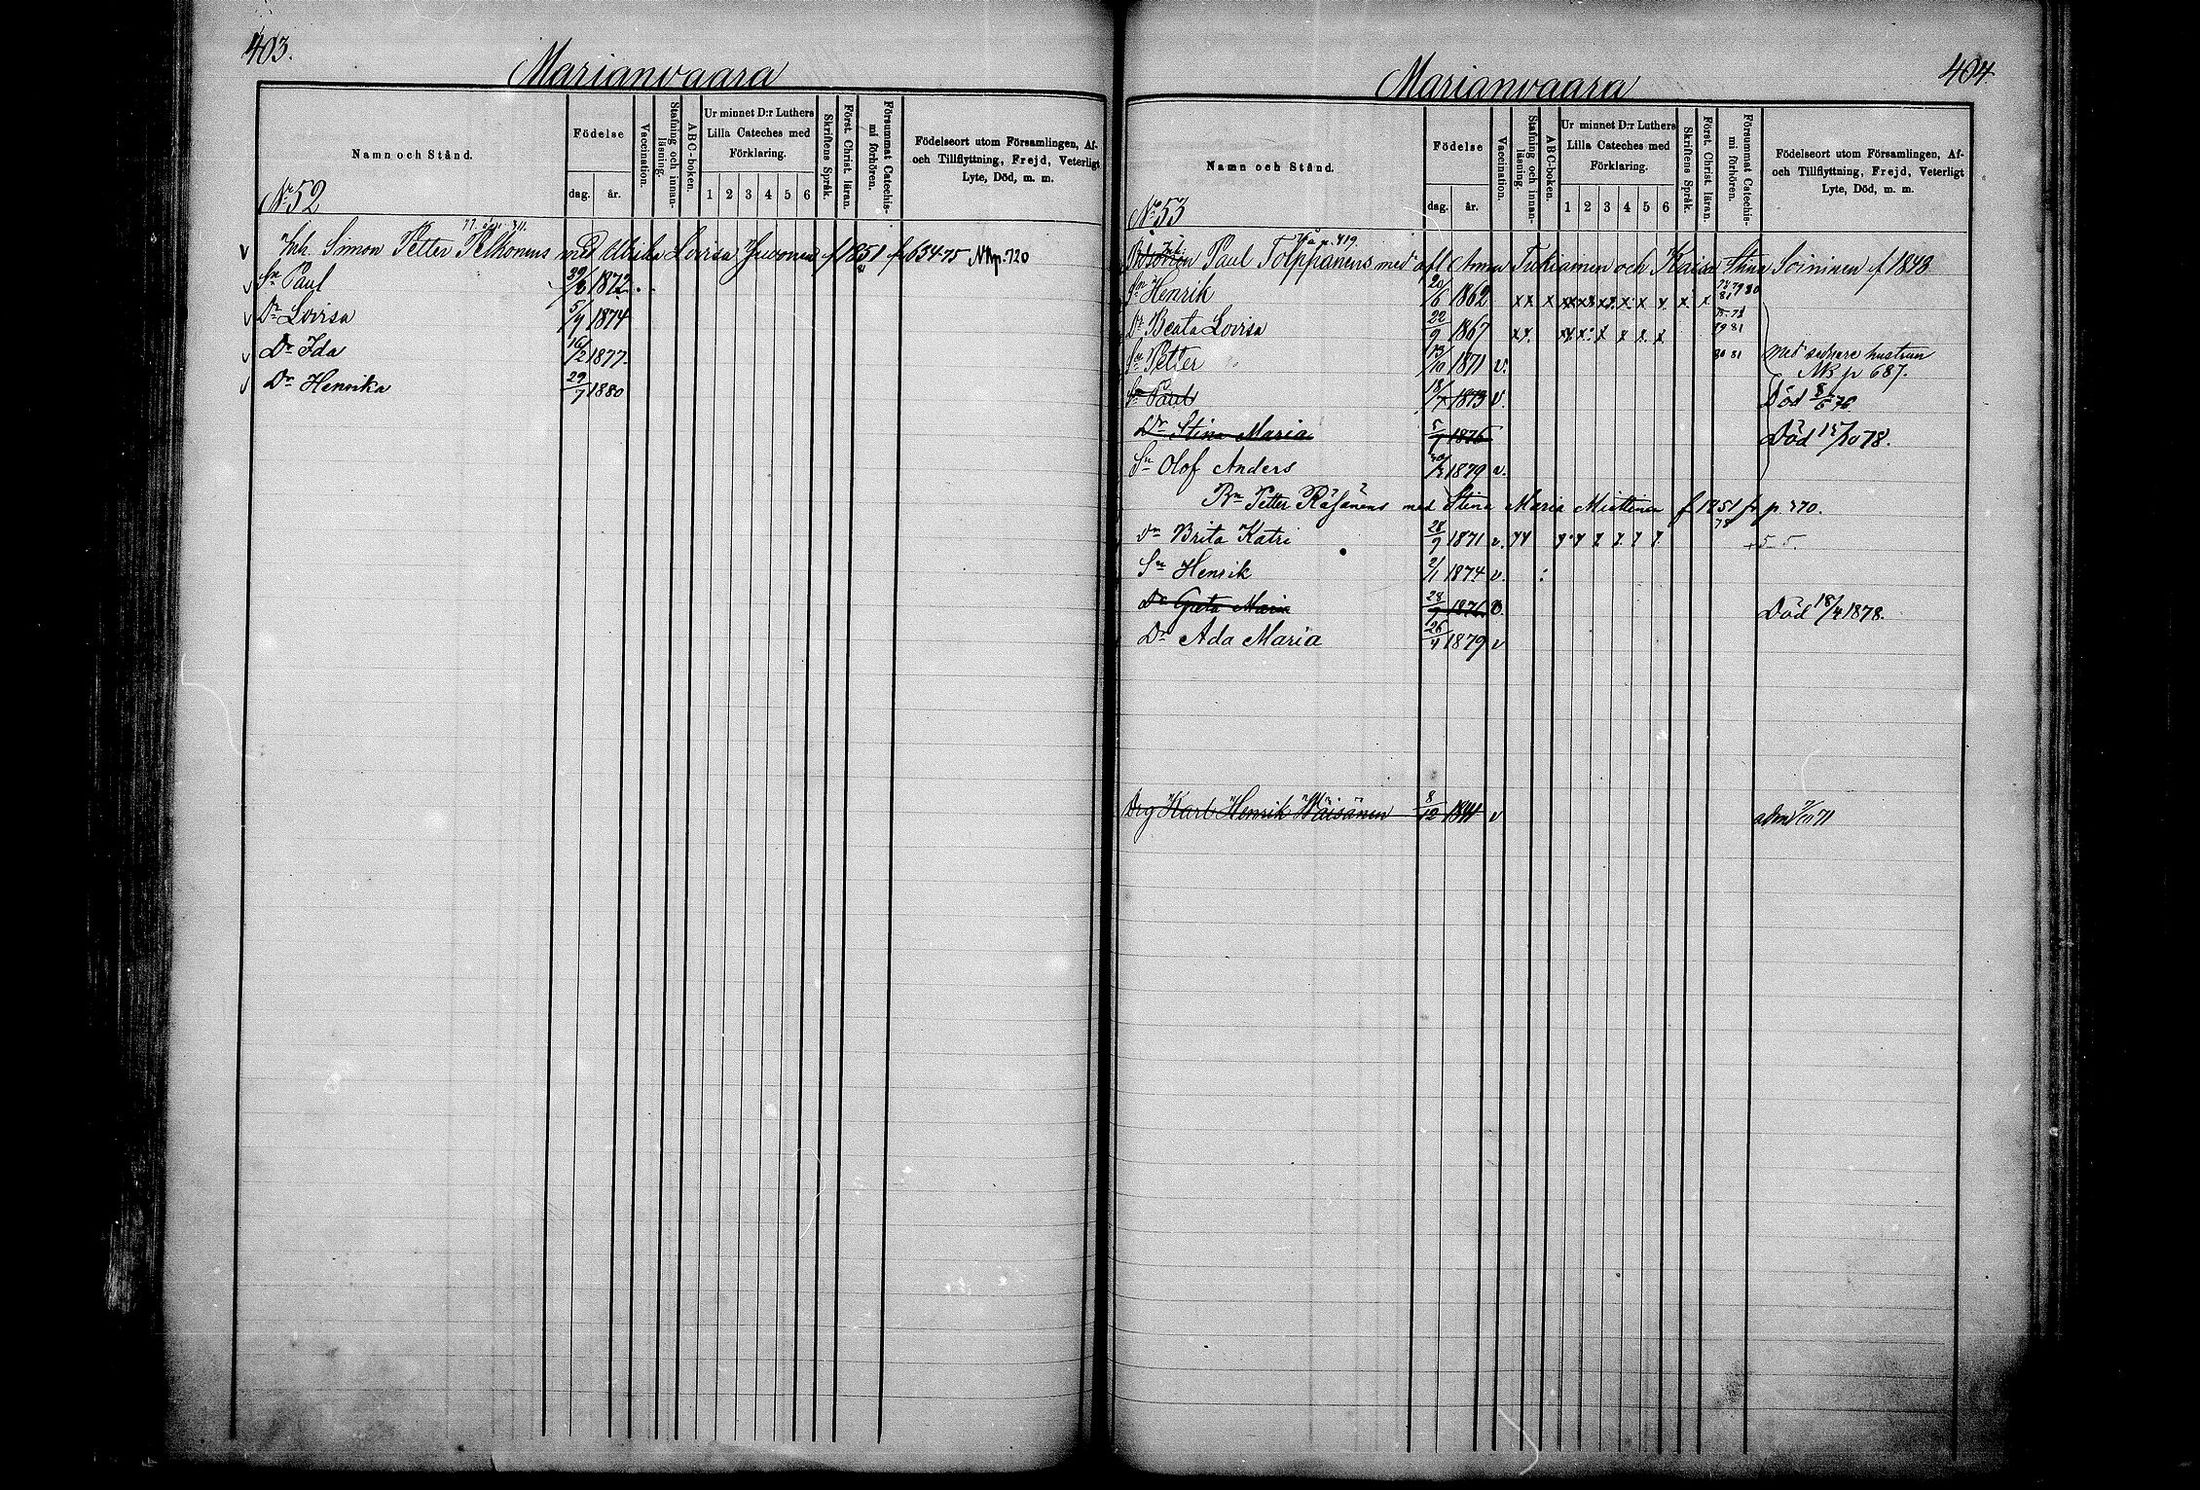 403.
Marianvaara
Namn och Stånd.
Födelse
dag. år.
Vaccination.
Stafning och innan-läsning.
ABC-boken.
Ur minnet D:r Luthers
Lilla Cateches med
Förklaring.
1 2 3 4 5 6
Skriftens Språk.
Först. Christ. läran.
Försummat Catechis-mi förhören.
Födelseort utom Församlingen, Af-
och Tillflyttning, Frejd, Veterligt
Lyte, Död, m. m.
No 52
Inh. Simon Petter Pelkonens med Ulrika Lovisa f 1851 fr 634-75 Nkp. 720
v Sn Paul 29/8 1872
v Dr Lovisa 5/7 1874
v Dr Ida 16/2 1877
v Dr Henrika 29/7 1880
404
Marianvaara
Namn och Stånd.
Födelse
dag. år.
Vaccination.
Stafning och innan-läsning.
ABC-boken.
Ur minnet D:r Luthers
Lilla Cateches med
Förklaring.
1 2 3 4 5 6
Skriftens Språk.
Först. Christ. läran.
Försummat Catechis-mi förhören.
Födelseort utom Församlingen, Af-
och Tillflyttning, Frejd, Veterligt
Lyte, Död, m. m.
No 53
på p. 419
Inh. Paul Tolppanens med afl Anna Tukiainen och Kaisa Stina Soininen f 1848
Sn Henrik 20/6 1862 x x x x x x x x x x x 79 80 81
Dr Beata Lovisa 22/9 1867 x x x x x x x x 79 81
Sn Petter 13/10 1871 v. 80 81 med senare hustrun
Nk p 687.
Sn Paul 18/7 1873 v. Död 8/6 76
Dr Stina Maria 5/7 1876 Död 15/10 78.
Sn Olof Anders 1879 v.
Bn Petter Räsänens med Stina Maria Miettinen f 1851 fr p. 270.
78
Dr Brita Katri 28/9 1871 v.
Sn Henrik 2/1 1874 v.
Dr Greta Maria 28/9 1876 v. Död 18/4 1878.
Dr Ada Maria 26/4 1879 v
Drg Karl Henrik Wäisänen 8/12 1844 v 71